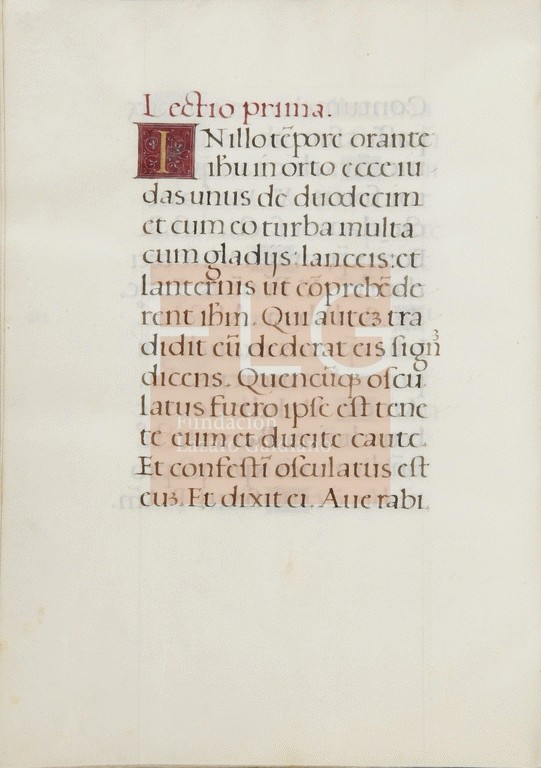 Lectio prima.
INillo tēpore orante
ihu in orto ecce iu
das unus de duodecim
et cum eo turba multa
cum gladijs: lanceis: et
lanternis ut cōprehēde
rent ihm. Qui autēꝫ tra
didit eū dederat eis sign̄ꝫ
dicens. Quencūqꝫ oscu
latus fuero ipse est tene
te eum et ducite caute.
Et confestī osculatus est
euꝫ. Et dixit ei. Aue rabi.
FLG
Fundación
Lázaro Galdiano